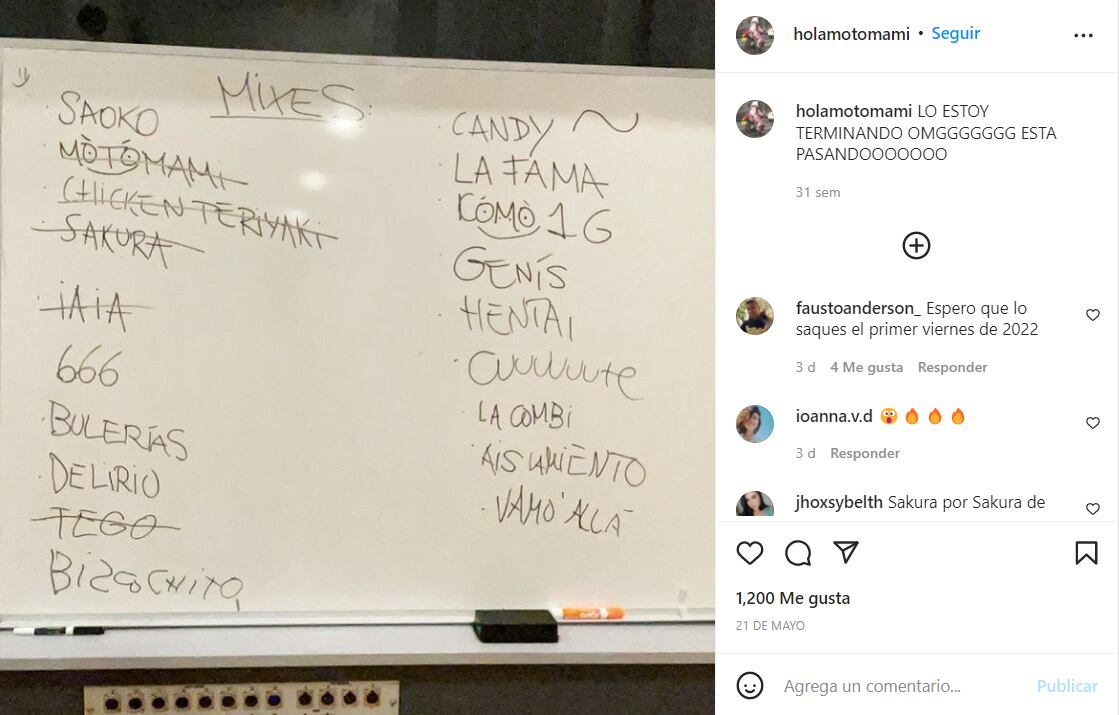 MIXES:
SAOKO
MÒTÓMAMI
CHICKEN TERIYAKI
SAKURA
iAiA
666
BULERÍAS
DELIRIO
TEGO
BIZCOCHITO
CANDY
LA FAMA
KÓMÒ 1 G
GENÍS
HENTAI
CUUUUUTE
LA COMBI
AISLAMIENTO
VAMO' ALLÁ
holamotomami • Seguir
holamotomami LO ESTOY
TERMINANDO OMGGGGGGG ESTA
PASANDOOOOOOO
31 sem
faustoanderson_ Espero que lo
saques el primer viernes de 2022
3 d 4 Me gusta Responder
ioanna.v.d 😲🔥🔥🔥
3 d Responder
jhoxsybelth Sakura por Sakura de
1,200 Me gusta
21 DE MAYO
Agrega un comentario... Publicar